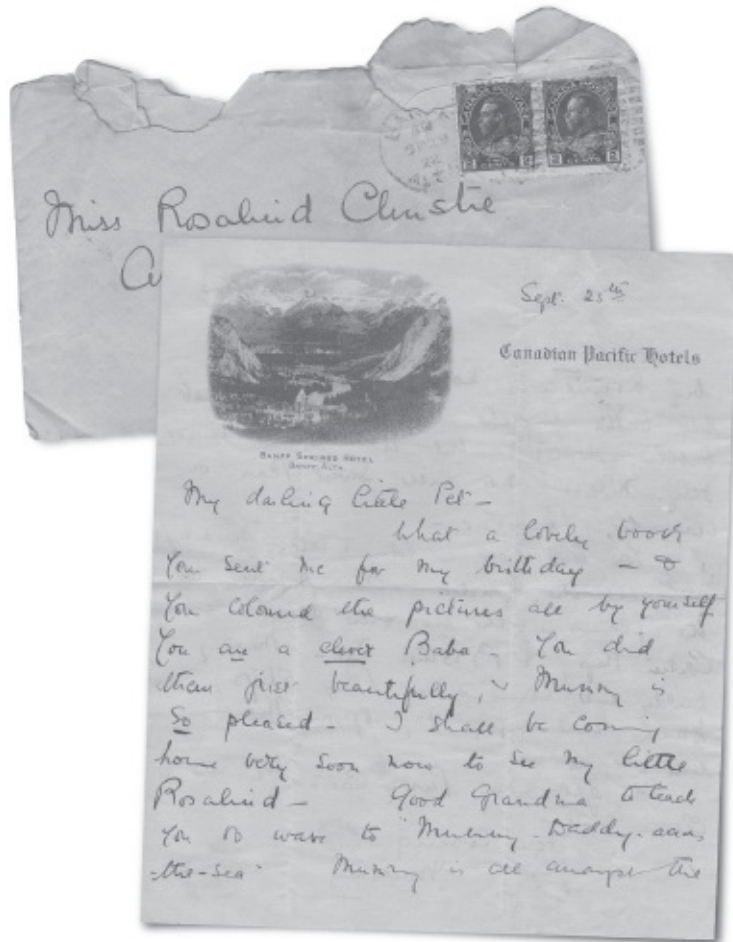 Miss Rosalind Christie
Sept. 25th
Canadian Pacific Hotels
BANFF SPRINGS HOTEL
BANFF, ALTA.
My darling little Pet –
What a lovely book
you sent me for my birthday – &
you coloured the pictures all by yourself
You are a clever Baba – You did
them just beautifully, & Mummy is
So pleased – I shall be coming
home very soon now to see my little
Rosalind – Good Grandma to teach
you to wave to "Mummy-Daddy-
-the-sea" Mummy is all amongst the